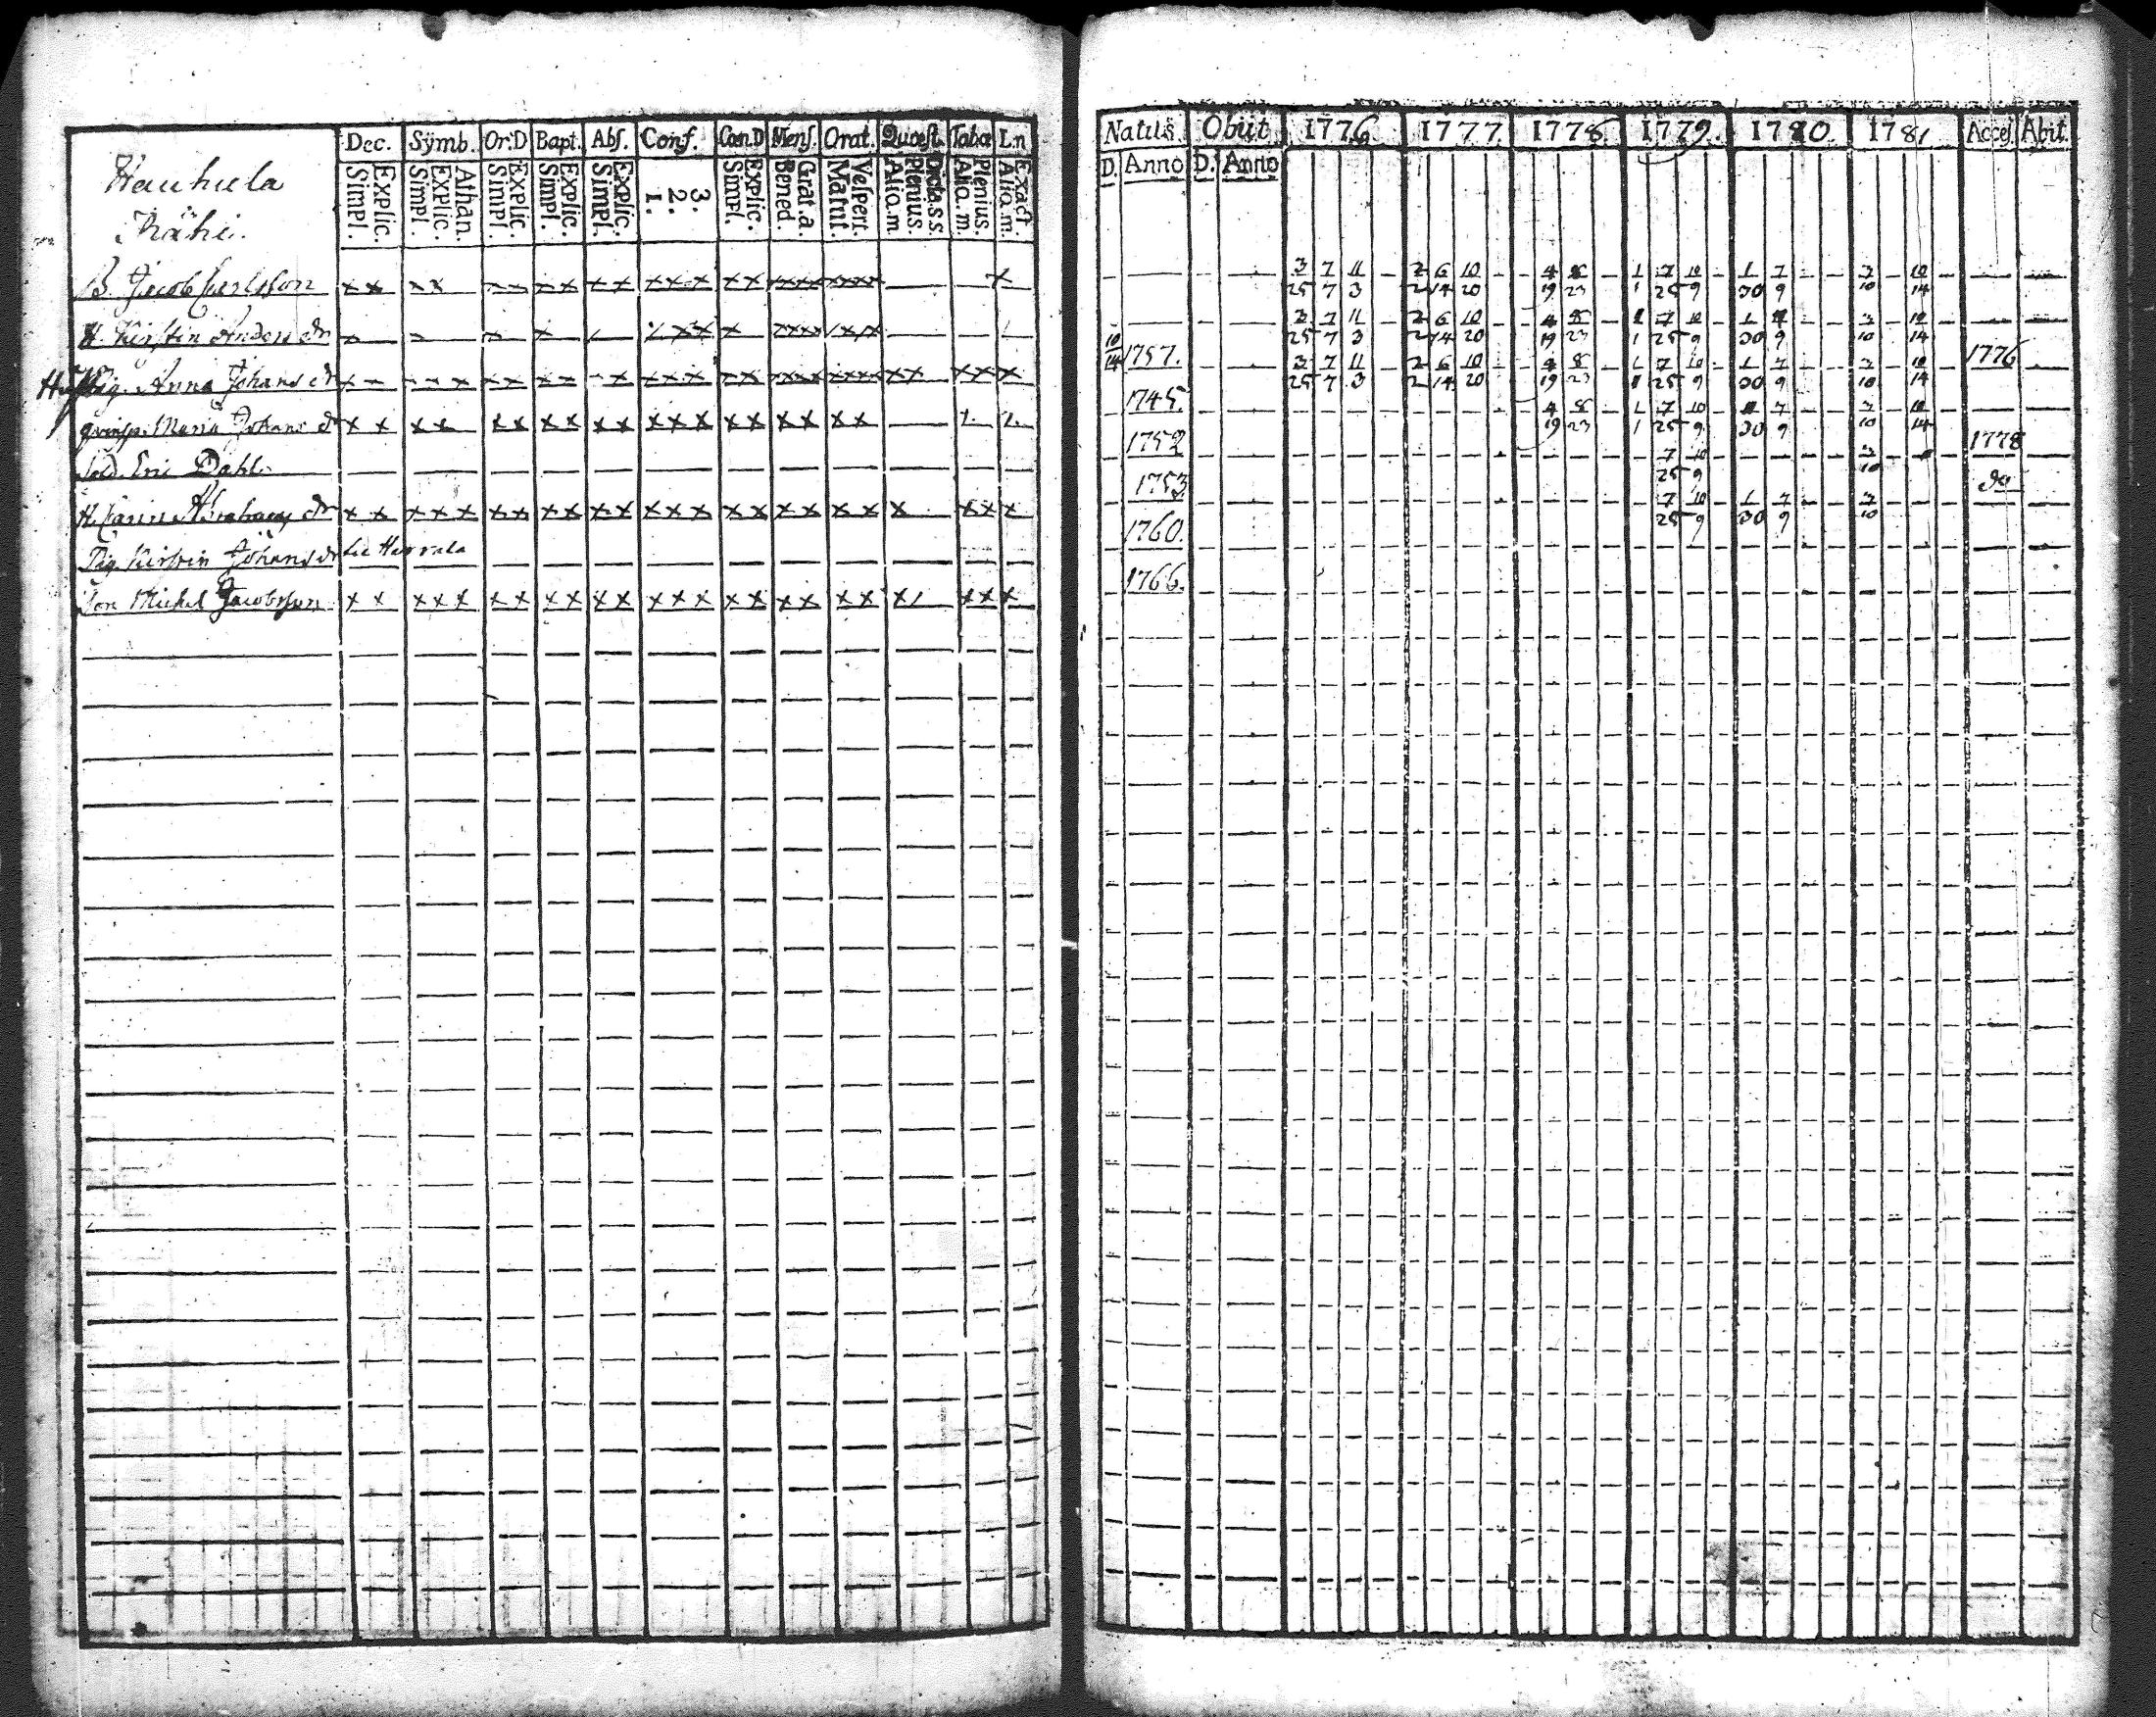 Hauhula
Krähi.
Dec. Sÿmb. Or:D Bapt. Abſ. Conf. Cœn.D Menſ. Orat. Quœſt. Tabœ L:n
Simpl. Explic. Simpl. Explic. Athan. Simpl. Explic. Simpl. Explic. Simpl. Explic. 1. 2. 3. Simpl. Explic. Bened. Grat.a. Matut. Veſpert. Aliq.m Plenius. Dicta.s.s Aliq.m. Plenius. Aliq.m. Exact.
B. Jacob Carlsson x x x x x x x x x x x x x x x x x x x x x x x
H. Kirstin Anders dr
Pig. Anna Johans dr
qvinsp. Maria Johans dr x x x x x x x x x x x x x x x x x x x
Sold. Eric Dahl.
H. Carin Abrahams dr x x x x x x x x x x x x x x x x x x x x x x x x
Pig. Kirstin Johans dr
Son Mickel Jacobsson x x x x x x x x x x x x x x x x x x x x
Natus. Obiit 1776 1777. 1778. 1779. 1780. 1781 Acceſ. Abit.
D. Anno D. Anno
3 7 11 2 6 10 4 8 1 7 10 1 7 3 10
25 7 3 2 14 20 19 23 1 25 9 30 9 10 14
3 7 11 2 6 10 4 8 1 7 10 1 7 3 10
25 7 3 2 14 20 19 23 1 25 9 30 9 10 14
10 14 1757. 3 7 11 2 6 10 4 8 1 7 10 1 7 3 10 1776
25 7 3 2 14 20 19 23 1 25 9 30 9 10 14
1745. 4 8 1 7 10 1 7 3 10
19 23 1 25 9 30 9 10 14
1752 7 10 3 1778
25 9 10
1753 7 10 1 7 3 do
25 9 30 9 10
1760.
1766.